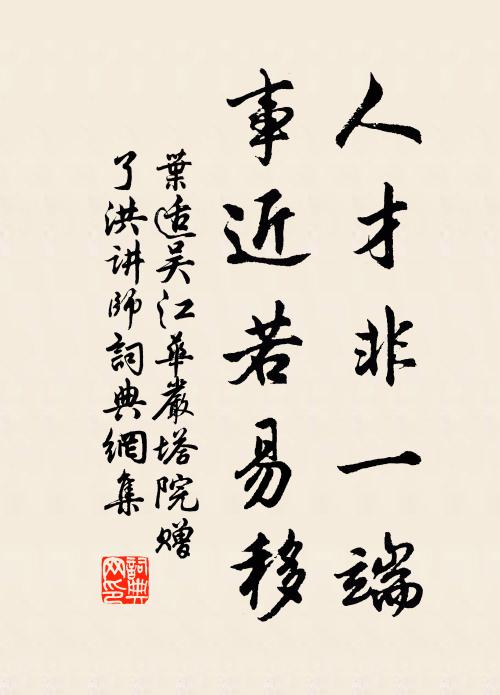 人才非一端
事近若易移
葉适吴江華嚴塔院赠
了洪讲师詞典網集
詞典
网印